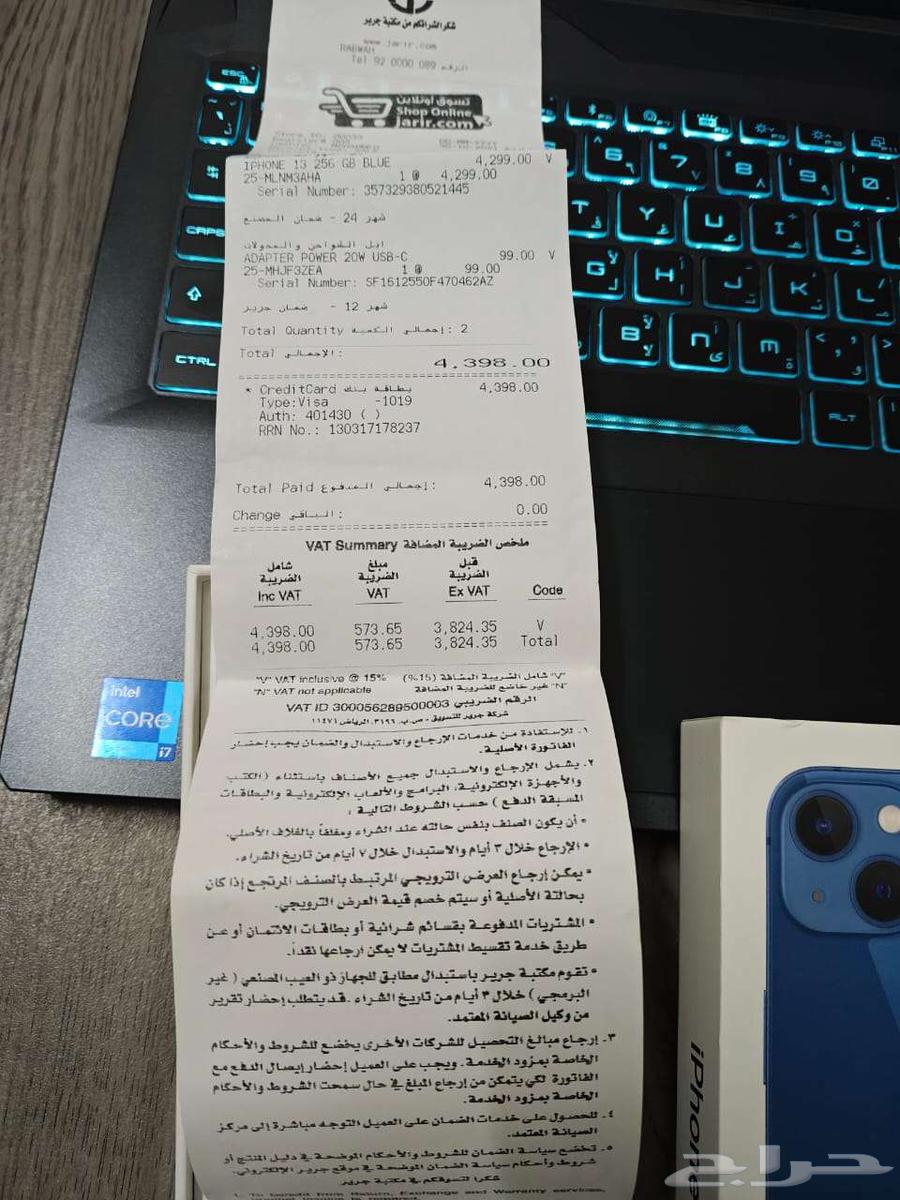 شكرا لشرائكم من مكتبة جرير
www.jarir.com
RABWAH
Tel 92 0000 089 الرقم
تسوق أونلاين
Shop Online
Jarir.com
IPHONE 13 256 GB BLUE 4,299.00 V
25-MLNM3AHA 1 @ 4,299.00
Serial Number: 357329380521445
شهر 24 - ضمان المصنع
ابل الشواحن والمحولات
ADAPTER POWER 20W USB-C 99.00 V
25-MHJF3ZEA 1 @ 99.00
Serial Number: SF1612550F470462AZ
شهر 12 - ضمان جرير
Total Quantity إجمالي الكمية : 2
Total الإجمالي :
4,398.00
* CreditCard بطاقة بنك 4,398.00
Type:Visa -1019
Auth: 401430 ( )
RRN No.: 130317178237
Total Paid إجمالي المدفوع : 4,398.00
Change الباقي : 0.00
VAT Summary ملخص الضريبة المضافة
شامل الضريبة مبلغ الضريبة قبل الضريبة
Inc VAT VAT Ex VAT Code
4,398.00 573.65 3,824.35 V
4,398.00 573.65 3,824.35 Total
"V" VAT inclusive @ 15% "V" شامل الضريبة المضافة (15%)
"N" VAT not applicable "N" غير خاضع للضريبة المضافة
VAT ID 300056289500003 الرقم الضريبي
شركة جرير للتسويق - ص.ب. ٣١٩٦، الرياض ١١٤٧١
١. للإستفادة من خدمات الإرجاع والاستبدال والضمان يجب إحضار
الفاتورة الأصلية.
٢. يشمل الإرجاع والاستبدال جميع الأصناف باستثناء (الكتب
والأجهزة الإلكترونية، البرامج والألعاب الإلكترونية والبطاقات
المسبقة الدفع ) حسب الشروط التالية :
• أن يكون الصنف بنفس حالته عند الشراء ومغلفاً بالغلاف الأصلي.
• الإرجاع خلال ٣ أيام والاستبدال خلال ٧ أيام من تاريخ الشراء.
• يمكن إرجاع العرض الترويجي المرتبط بالصنف المرتجع إذا كان
بحالتة الأصلية أو سيتم خصم قيمة العرض الترويجي.
• المشتريات المدفوعة بقسائم شرائية أو بطاقات الائتمان أو عن
طريق خدمة تقسيط المشتريات لا يمكن إرجاعها نقداً.
• تقوم مكتبة جرير باستبدال مطابق للجهاز ذو العيب المصنعي ( غير
البرمجي ) خلال ٣ أيام من تاريخ الشراء . قد يتطلب إحضار تقرير
من وكيل الصيانة المعتمد.
٣. إرجاع مبالغ التحصيل للشركات الأخرى يخضع للشروط والأحكام
الخاصة بمزود الخدمة. ويجب على العميل إحضار إيصال الدفع مع
الفاتورة لكي يتمكن من إرجاع المبلغ في حال سمحت الشروط والأحكام
الخاصة بمزود الخدمة.
٤. للحصول على خدمات الضمان على العميل التوجه مباشرة إلى مركز
الصيانة المعتمد.
٥. تخضع سياسة الضمان للشروط والأحكام الموضحة في دليل المنتج أو
شروط وأحكام سياسة الضمان الموضحة في موقع جرير الإلكتروني.
شكرا لتسوقكم في مكتبة جرير
1. To benefit from Return, Exchange and Warranty services,
intel
CORE
i7
iPhone
حراج
ESC
CAPS
CTRL
ALT